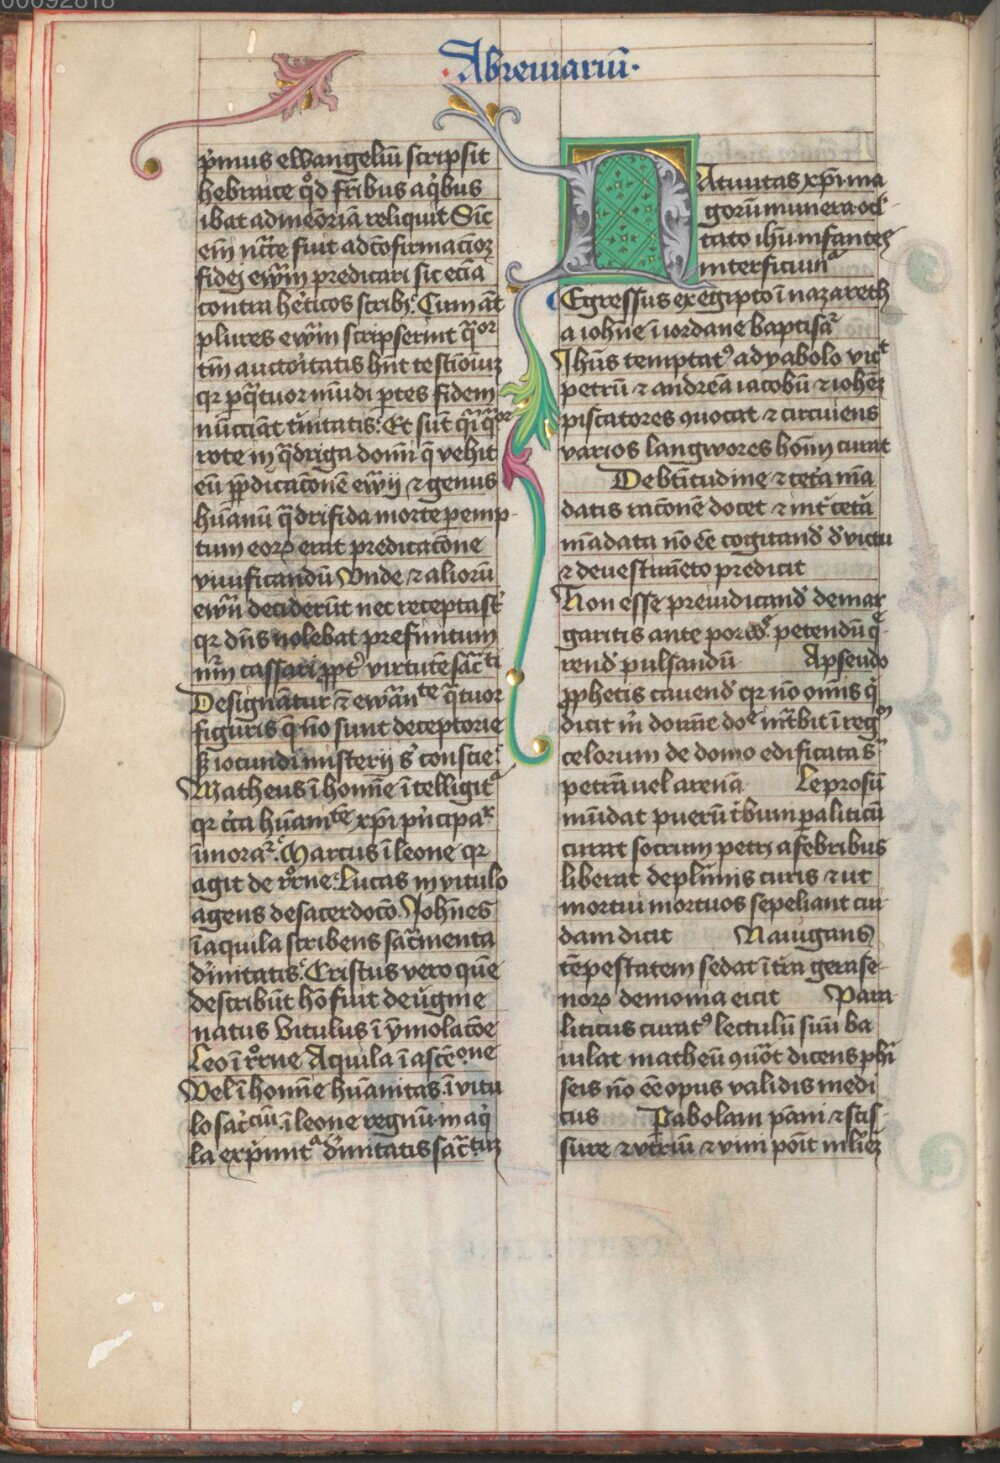 00092818
Abreuiariū
p̓mus ewangeliū scripsit
hebraice qͦd fr̄ibus a q̓bus
ibat ad meōriā reliquit Sic̄
em̄ nc̄c̄e fuit ad cōfirmacōꝫ
fidej ew̄m predicari sic eciā
contra he͛ticos scribi Cum aūt
plures ew̄m scripserint q̄ᵒʳ
tm̄ auctoritatis hn̄t testīoīuꝫ
qr p q̄tuor mūdi ptes fidem
nūcciāt t͛nitatis Et sūt q̄i q̄ᵒʳ
rote in q̄driga domī q̄ vehit
eū ꝓdicacōnem ewⁱⁱ ⁊ genus
hūanū q̄drifida morte pemp
tum eoꝝ erat predicacōne
viuificandū Vnde ⁊ alioꝛū
ew̄ⁿ deciderūt nec receptasͭ
qr dn̄s nolebat prefinitum
nr̄m cassari ꝓpt͛ virtutē sāc̄ti
Designātur ī ewāⁿᵗᵉ q̄tuor
figuris q̄ nō sunt deceptorie
sꝫ iocundi misterij s̄ conscie
Matheus ī honn̄e ītelligitᵃ
qr c̓ca hūanitᵗᵉ xp̄i pn̓cipaʳ
īmoraᵗ Marcus ī leone qr
agit de rͦrne Lucas in vitulo
agens de sacerdocō Johēnes
ī aquila scribens sac̄menta
d͛initatis Cristus vero quē
describūt hō fuit de ūgine
natus Vitulus ī ymolacōe
Leo ī rͦrne Aquila ī ascēᵒⁿᵉ
Vel ī honn̄e hūanitas ī vitu
lo sac̄ᶜⁱū ī leone regnū in aq̓
la exp̓mitᵃ d͛initatis sāc̄tuꝫ
Natiuitas xp̄i ma
gorū munera oc̄
tato ih̄u infantes
interficiunᵗ
Egressus ex egipto ī nazareth
a iohn̄e ī iordane baptisaᵗ
Jhūs temptatꝰ a dyabolo vicᵗ
petrū ⁊ andreā iacobū ⁊ iohēꝫ
piscatores quocat ⁊ circuiens
varios langwores honīm curat
De bt̄itudine ⁊ cet͛a mā
datis racōnē docet ⁊ int͛ cet͛a
mādata nō ēe cogitand̄ d̓ victu
⁊ de uestimēto predicit
Non esse preiudicand̄ de mar
garitis ante porcos petendū q̄
rend̄ pulsandū A pseudo
ꝓphetis cauend̄ qr nō omīs q̓
dicit m̓ domīe doᵉ int̄bit ī regᵒ
celorum de domo edificata sᵃ
petrā uel arenā Leprosū
mūdat puerū t̓bum paliticū
curat socrum petri a febribus
liberat de plimīs curis ⁊ ut
mortui mortuos sepeliant cui
dam dicit Nauigans
tēpestatem sedat ī t͛ra gerase
noꝝ demonia eicit Para
liticus curatꝰ lectulū suū ba
iulat matheū quōt dicens phi
seis nō ēe opus validis medi
cus Pabolam pāni ⁊ scis
sure ⁊ vtriū ⁊ vini poīt ml̓ieꝫ